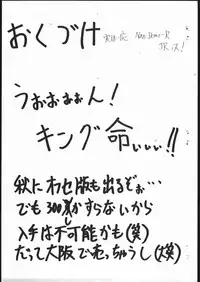 おくづけ
うおぉぉぉん!
キング命ぃぃぃ!!
秋にオフセ版も出るぞぉ…
でも300しかすらないから
入手は不可能かも(笑)
だって大阪で売っちゃうし(大笑)